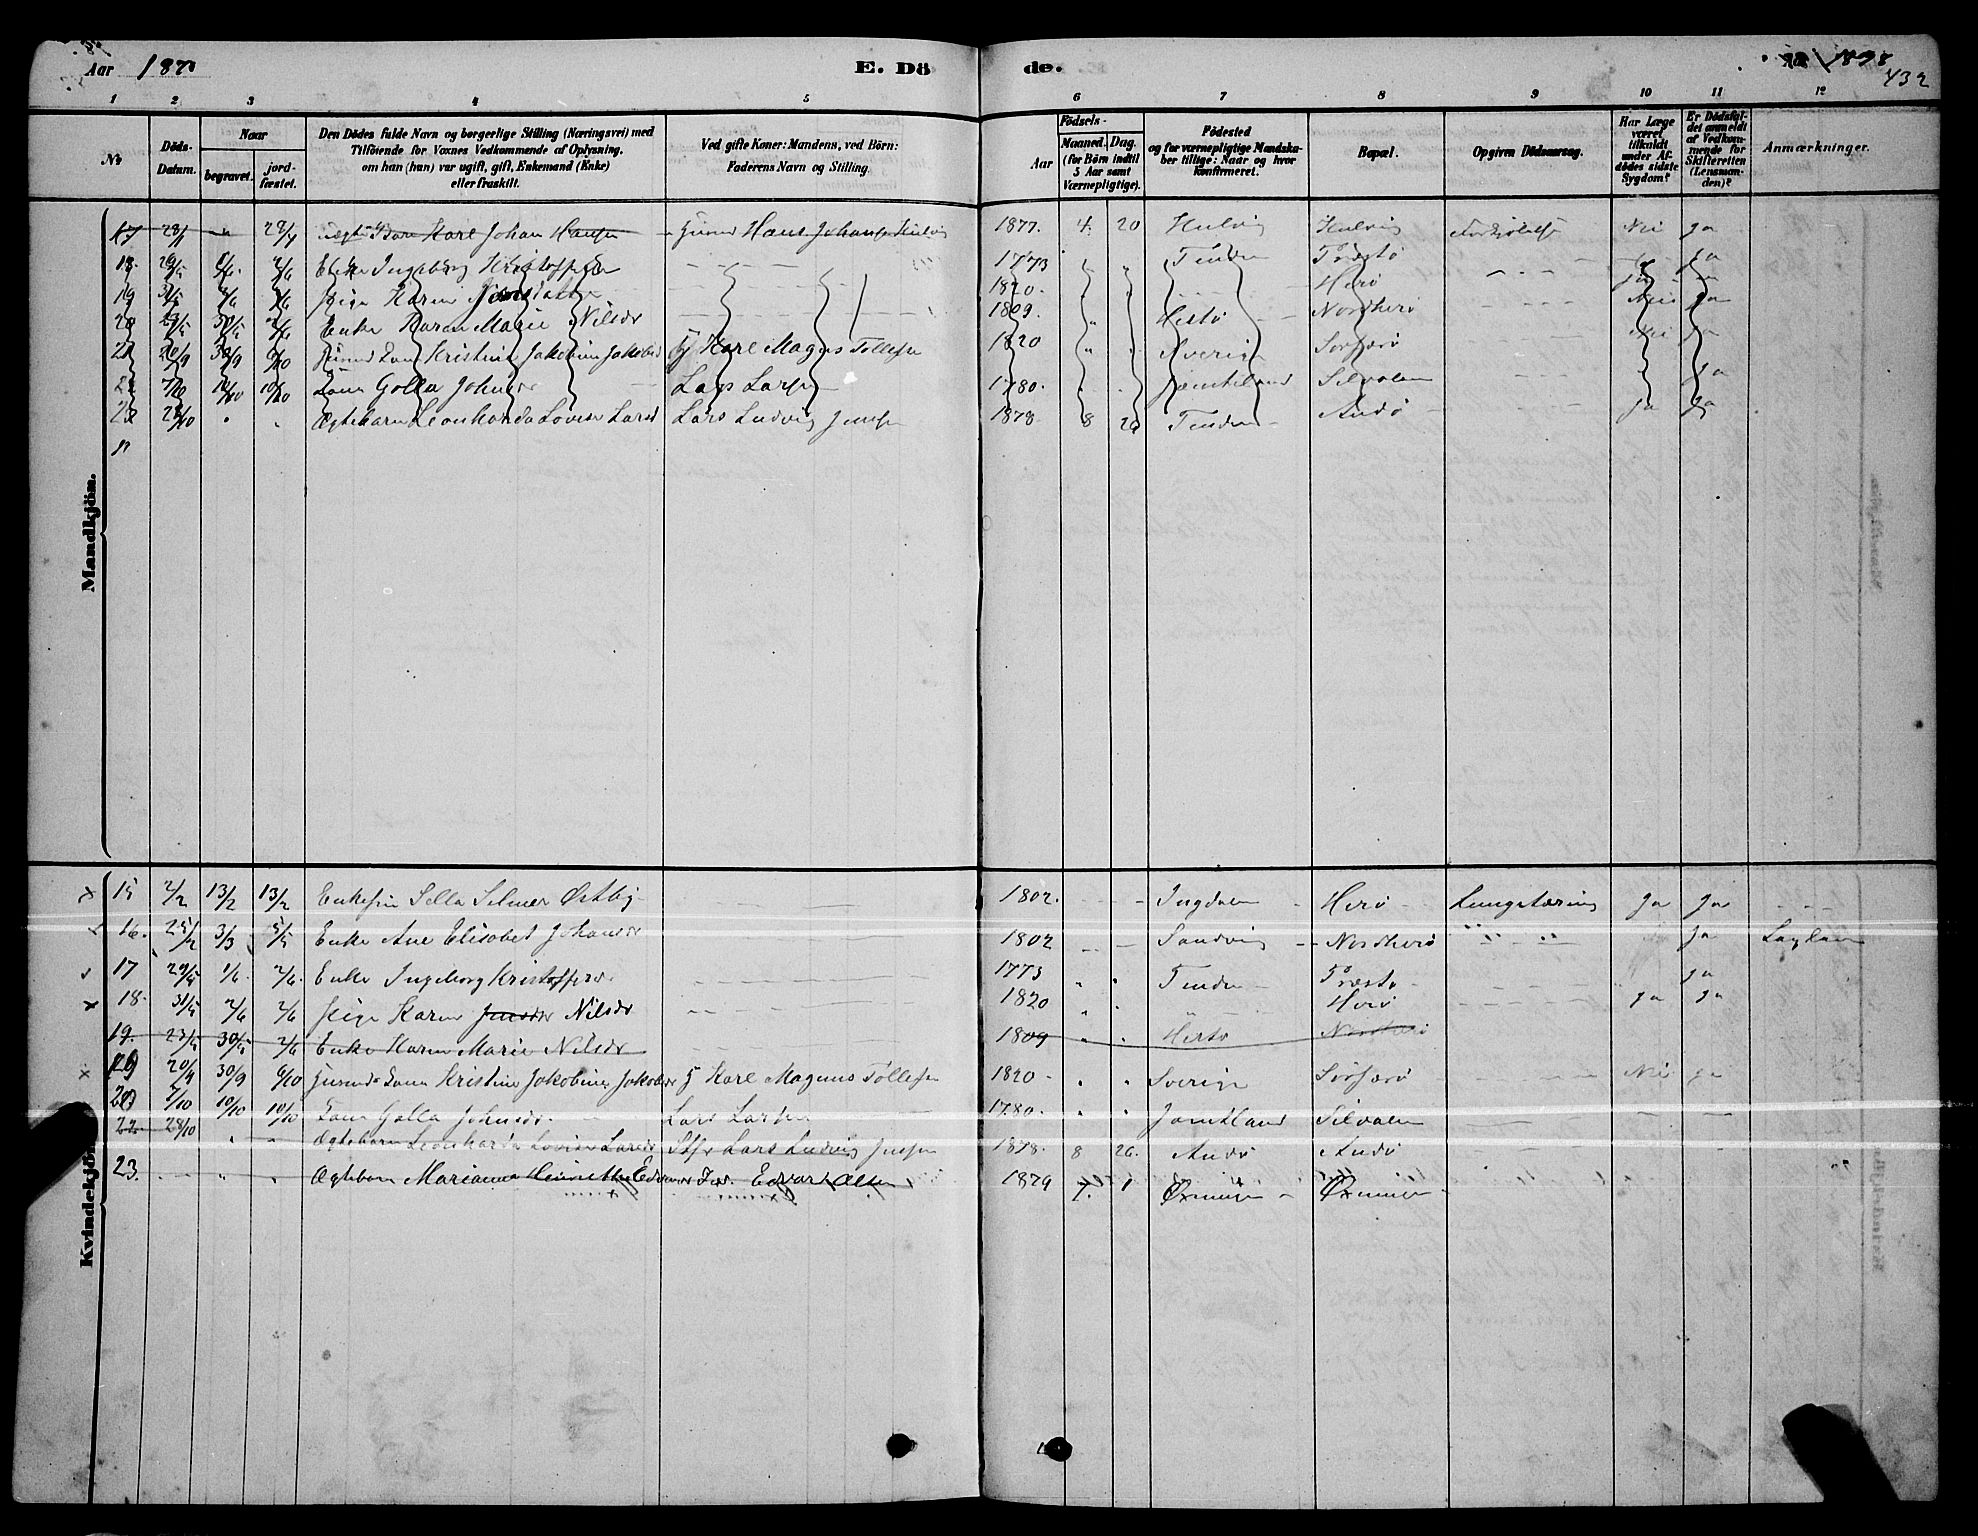 Aar 1878 E. Döde. 1878
432
1 2 3 4 5 6 7 8 9 10 11 12
No Döds-Datum. Naar begravet. jordfæstet. Den Dödes fulde Navn og borgerlige Stilling (Næringsvei) med Tilföiende for Voxnes Vedkommende af Oplysning, om han (hun) var ugift, gift, Enkemand (Enke) eller fraskilt. Ved gifte Koner: Mandens, ved Börn: Faderens Navn og Stilling. Aar Födsels- Maaned. Dag. (for Börn indtil 5 Aar samt Værnepligtige). Födested og for værnepligtige Mandskaber tillige: Naar og hvor konfirmeret. Bopæl. Opgiven Dödsaarsag. Har Læge været tilkaldt under Afdödes sidste Sygdom? Er Dödsfaldet anmeldt af Vedkommende for Skifteretten (Lensmanden)? Anmærkninger.
Mandkjön.
17 " Barn Karl Johan Hansen Hans Johansen Hulvig 1877. 4. 20 Hulvig Hulvig Forkjölelse Nei Ja
18. 29/5 1/6 2/6 Enke Ingeborg Kristoffersdr 1773 " " Tinden Præstö Ja
19 31/5 2/6 2/6 Pige Karen 1820. " " Herö Ja
20 23/5 30/5 2/6 Enke Karen Marie Nilsdr 1809. " Hestö Nordherö Nei Ja
21 20/9 30/9 6/10 Kristine Jakobine Jakobsd Karl Magnus Tollefsen 1820 " Sverige Nei Ja
22 7/10 10/10 10/10 Golla Johnsdr Lars Larsen 1780. " Jæmteland Silvalen Ja
23 28/10 " " Ægtebarn Leonharda Lovise Larsd Lars Ludvig Jensen 1878 8 26 Tinden Andö Ja Ja
Kvindekjön.
x 15 2/2 13/2 13/2 Enkefru Silla Selmer Östby 1802. Ingdalen Herö Lungetæring Ja Ja
16. 25/2 3/3 5/5 Enke Ane Elisabet Johansdr 1802 Sandvig Nordherö " " Ja
17 29/5 1/6. 2/6. Enke Ingeborg Kristoffersdr 1773 " " Tinden Præstö Ja
x 18. 31/5 2/6 2/6 Pige Karen Jensdr Nilsdr 1820 " " " Herö Ja Ja
19. 23/5 30/5 2/6 Enke Karen Marie Nilsdr 1809 " " Hestö Nordherö
x 20/9 30/9 6/10 Kristine Jakobine Jakobsdr Karl Magnus Tollefsen 1820 " " Sverige Nei Ja
7/10 10/10 10/10 Golla Johnsdr. Lars Larsen 1780. " " Jamtland Silvalen
22. 28/10 " " Ægtebarn Leonharda Lovise Larsdr Lars Ludvig Jensen 1878. 8 26. Andö Andö
23. " " Ægtebarn Marianna Edvard Olsen 1879 7. 1 Öxningen Öxningen